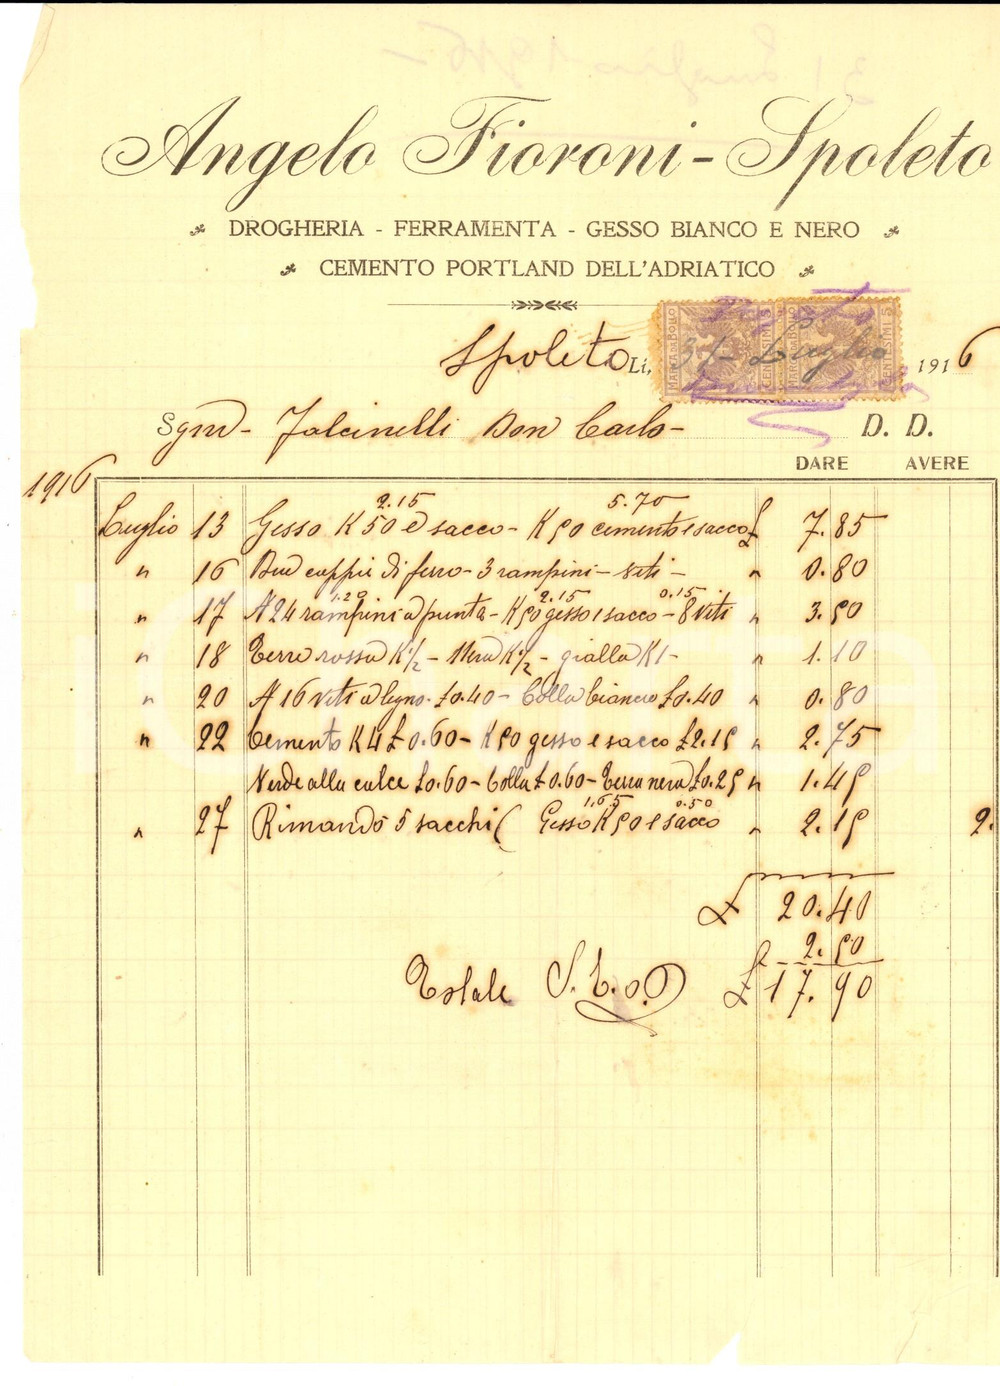 Angelo Fioroni - Spoleto
DROGHERIA - FERRAMENTA - GESSO BIANCO E NERO
CEMENTO PORTLAND DELL'ADRIATICO
MARCA DA BOLLO CENTESIMI 5 MARCA DA BOLLO CENTESIMI 5
Spoleto Lì, 31 - Luglio 1916
Sgnr - Falcinelli Don Carlo - D. D.
DARE AVERE
1916
2.15 5.70
Luglio 13 Gesso K 50 e sacco - K 50 cemento e sacco £ 7.85
" 16 Due coppie di ferro - 3 rampini - viti - " 0.80
1.20 2.15 0.15
" 17 N 24 rampini a punta - K 50 gesso e sacco - 8 viti " 3.50
" 18 Terra rossa K 1/2 - Nera K 1/2 - gialla K 1 - " 1.10
" 20 N 16 viti a legno £0.40 - Colla bianca £0.40 " 0.80
" 22 Cemento K 4 £0.60 - K 50 gesso e sacco £2.15 " 2.75
Verde alla calce £0.60 - Colla £0.60 - Terra nera £0.25 " 1.45
1.65 0.50
" 27 Rimando 5 sacchi ( Gesso K 50 e sacco " 2.15 2.
£ 20.40
£ 2.50
Totale S. E. o. O £ 17.90